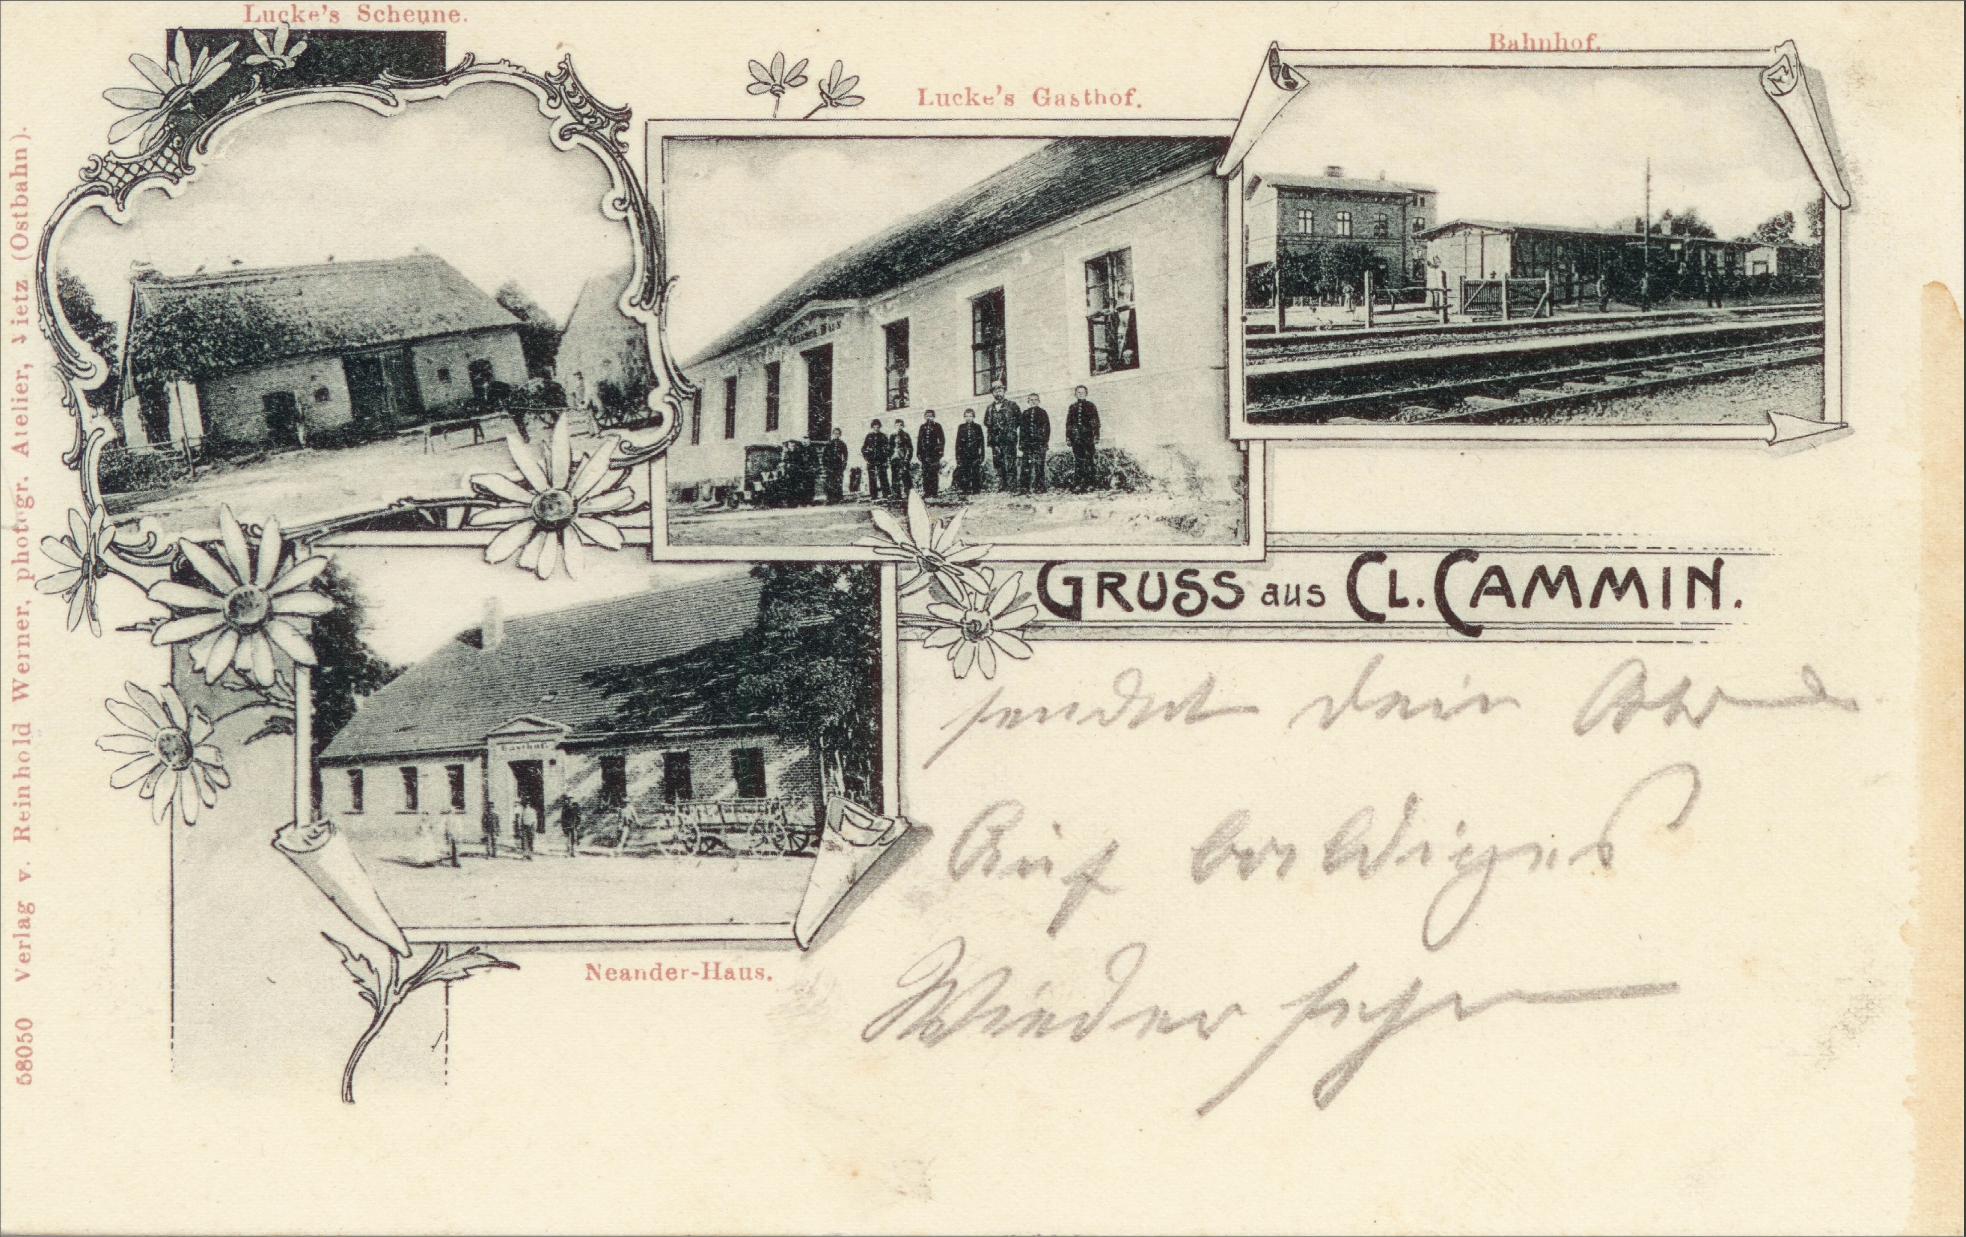 Lucke's Scheune.
Lucke's Gasthof.
Bahnhof.
Gasthof.
GRUSS aus CL. CAMMIN.
sendet dein
Auf baldiges
Wiedersehn
Neander-Haus.
58050 Verlag v. Reinhold Werner, photogr. Atelier, Vietz (Ostbahn).